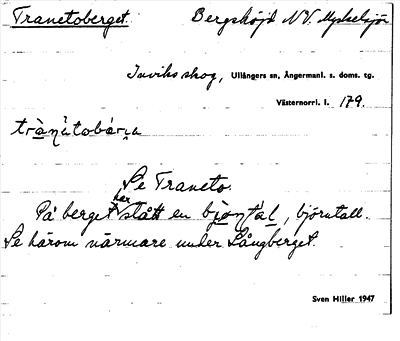 Tranetoberget. Bergshöjd NV. Myckelsjön
Inviks skog, Ullångers sn, Ångermanl. s. doms. tg.
Västernorrl. l. 179.
Se Traneto.
På berget har stått en björntall.
Se härom närmare under Långberget.
Sven Hiller 1947